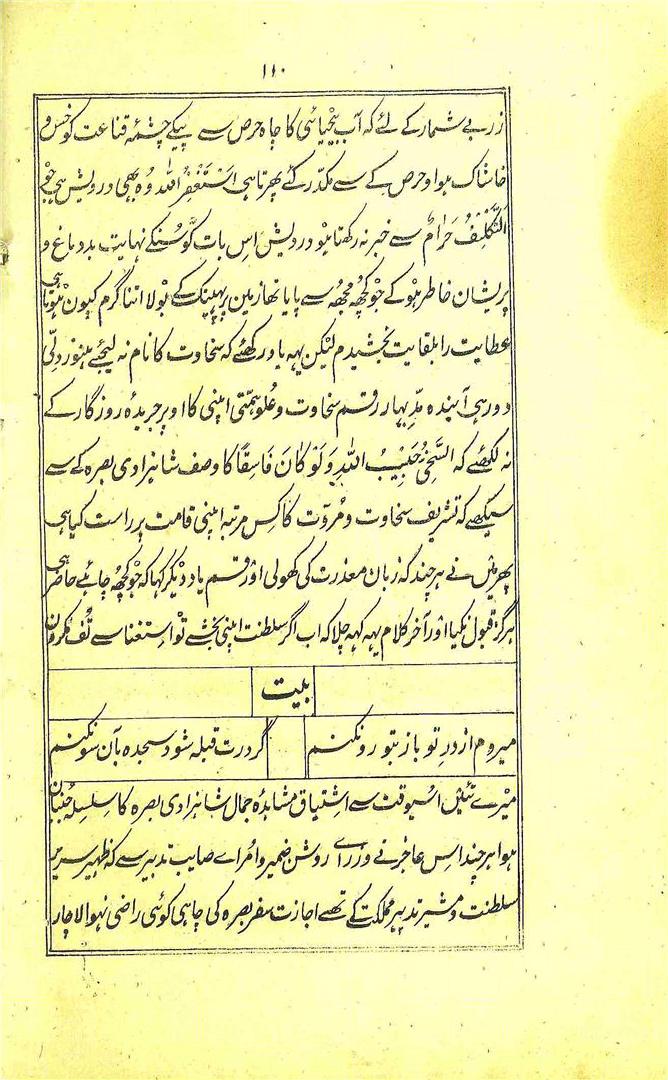 ۱۱۰
زر بے شمار کے لئے کہ آب بیحیائی کا چاہ حرص سے پیکے چشمۂ قناعت کو خس و
خاشاک ہوا و حرص کے سے مکدّر کئے پھرتا ہی اَسْتَغْفِرُ اللّٰہ وُہ بھی درویش ہی جو
التَّکْلِیْفُ حَرَامٌ سے خبر نہ رکھتا ہو درویش اِس بات کو سُنکے نہایت بد دماغ و
پریشان خاطر ہو کے جو کچھ مجھ سے پایا تھا زمین پر پھینک کے بولا اتنا گرم کیوں ہوتا ہی
عطایت را بلقایت بخشیدم لیکن یہہ یاد رکھئے کہ سخاوت کا نام نہ لیجئے ہنوز دلّی
دور ہی آیندہ مدّ بہار رقم سخاوت و عُلو ہمّتی اپنی کا اوپر جریدۂ روزگار کے
نہ لکھئے کہ السَّخِیُّ حَبِیْبُ اللّٰہِ وَلَوْ کَانَ فَاسِقًا کا وصف شاہزادی بصرہ کے سے
سیکھئے کہ تشریف سخاوت و مُروّت کا کِس مرتبہ اپنی قامت پر راست کیا ہی
پھر میں نے ہر چند کہ زبان معذرت کی کھولی اور قسم یاد دیکر کہا کہ جو کچھ چاہئے حاضر ہی
ہرگز قبول نکیا اور آخر کلام یہہ کہہ چلا کہ اب اگر سلطنت اپنی بخشے تو اِستغنا سے تُف نکرون
بیت
میروم از در تو باز بتو رو نکنم گر درت قبلہ شود سجدہ بآن سو نکنم
میرے تئیں اُسیوقت سے اشتیاق مشاہدۂ جمال شاہزادی بصرہ کا سلسلہ جنبان
ہوا ہر چند اس عاجز نے وزراے روشن ضمیر و اُمراے صایب تدبیر سے کہ ظہیر سریر
سلطنت و مشیر تدبیر مملکت کے تھے اجازت سفر بصرہ کی چاہی کوئی راضی نہوا لاچار